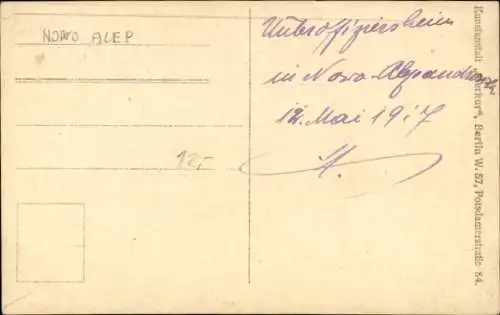 NOWO ALEP
Unteroffiziersheim
in Nowo-Alexandrowsk
12. Mai 1917
12,-
Kunstanstalt „Merkur", Berlin W. 57, Potsdamerstraße 84.